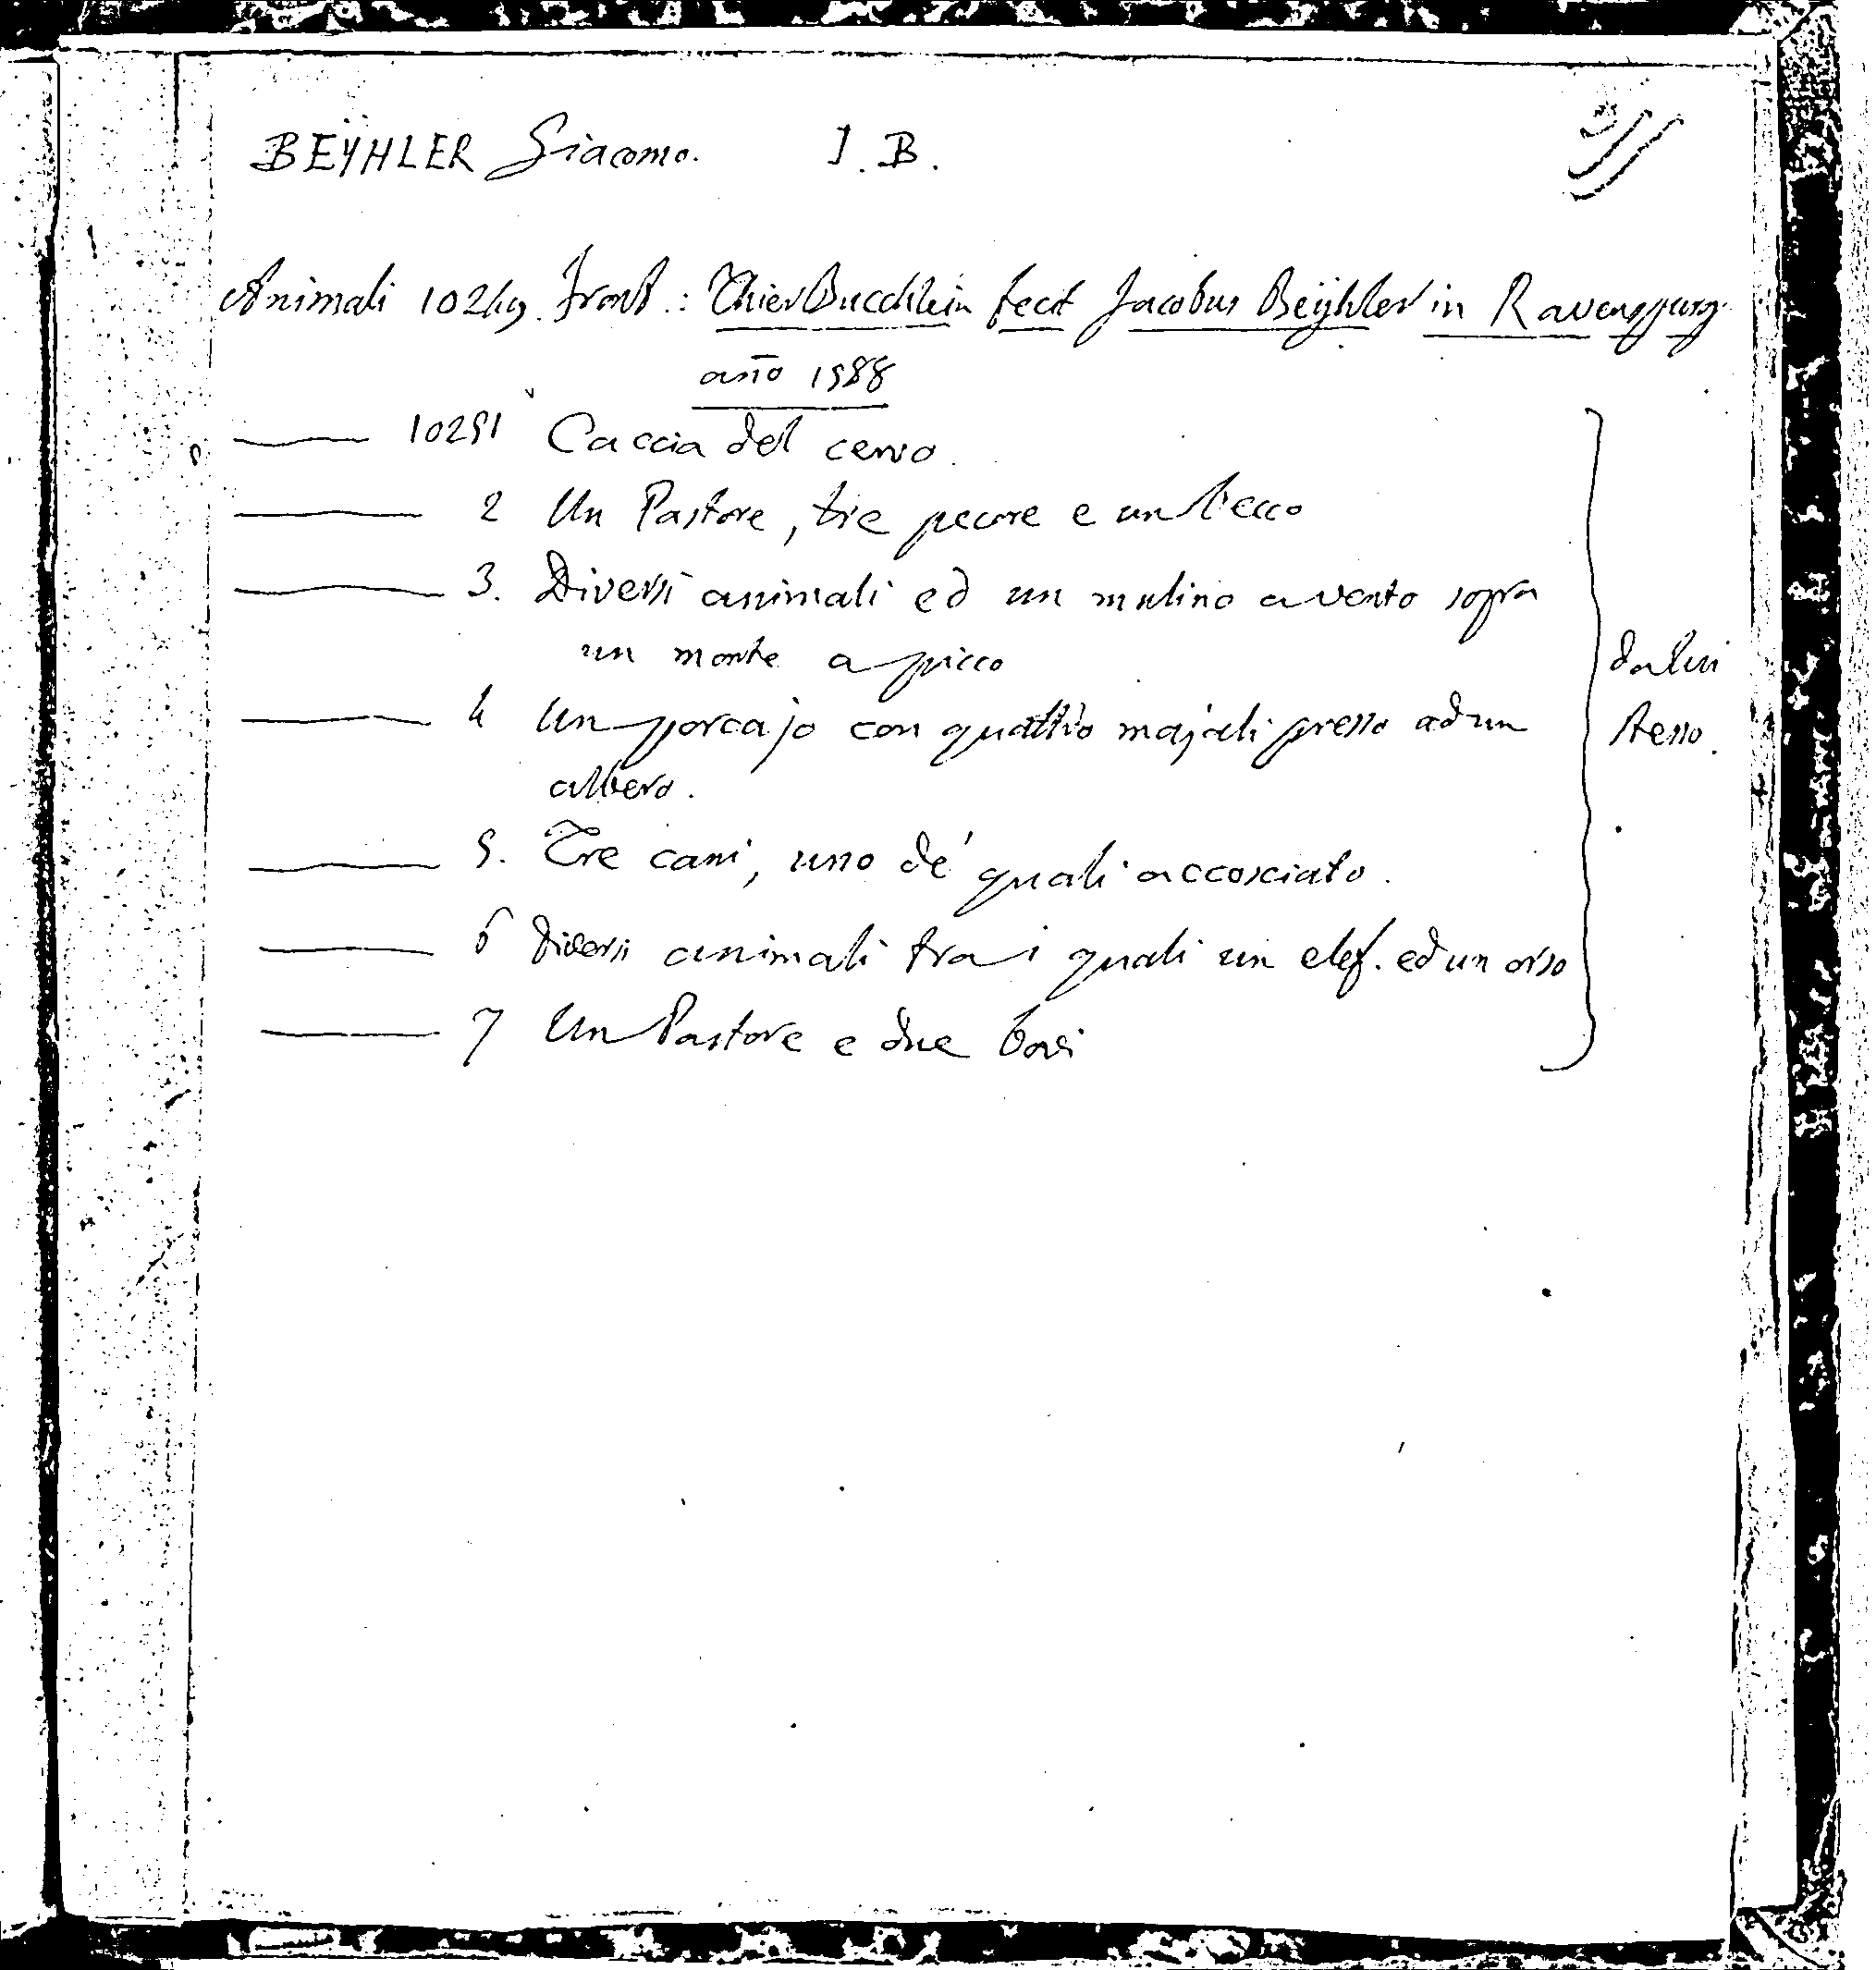 BEŸHLER Giacomo. J. B.
Animali 10249. Front.: ThierBucchlein fecit Jacobus Beÿhler in Ravenspurg
año 1588
10251 Caccia del cervo.
2 Un Pastore, tre pecore e un becco
3. Diversi animali ed un mulino a vento sopra
un monte a picco
4 Un porcajo con quattro majali presso ad un
albero.
5. Tre cani, uno de' quali accosciato.
6 Diversi animali tra i quali un elef. ed un orso
7 Un Pastore e due bovi
da lui
stesso.